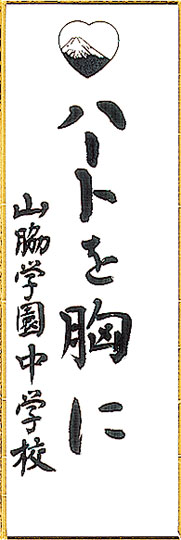 ハートを胸に
山脇学園中学校